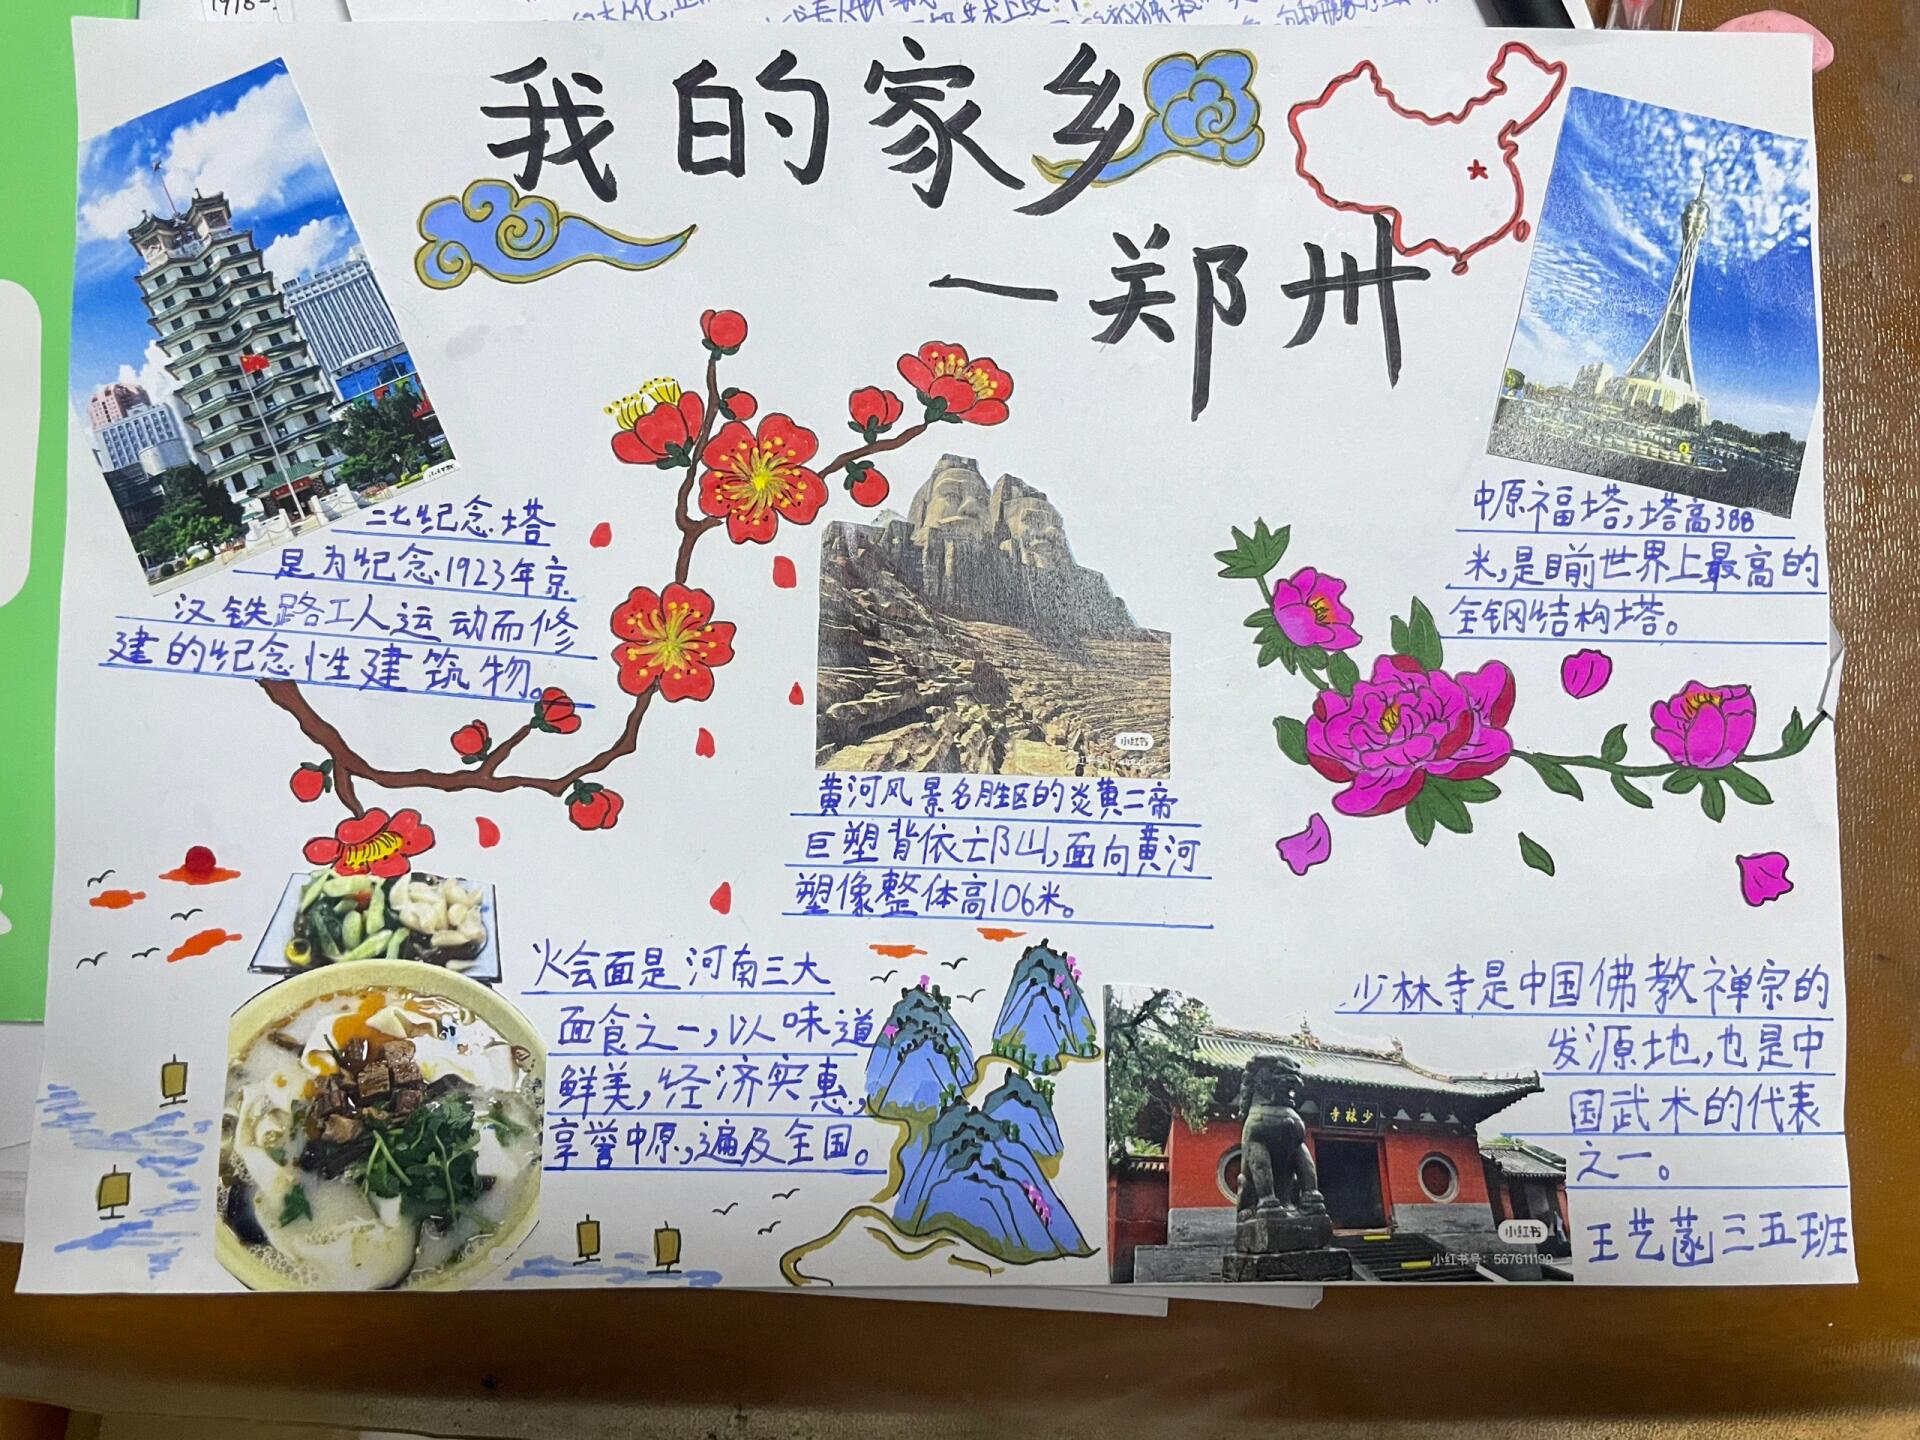 我的家乡
一郑州
二七纪念塔
是为纪念1923年京
汉铁路工人运动而修
建的纪念性建筑物。
中原福塔,塔高388
米,是目前世界上最高的
全钢结构塔。
小红书
黄河风景名胜区的炎黄二帝
巨塑背依亡阝山,面向黄河
塑像整体高106米。
火会面是河南三大
面食之一,以味道
鲜美,经济实惠,
享誉中原,遍及全国。
少林寺是中国佛教禅宗的
发源地,也是中
国武术的代表
之一。
寺林少
小红书
小红书号:567611190
王艺菡三五班